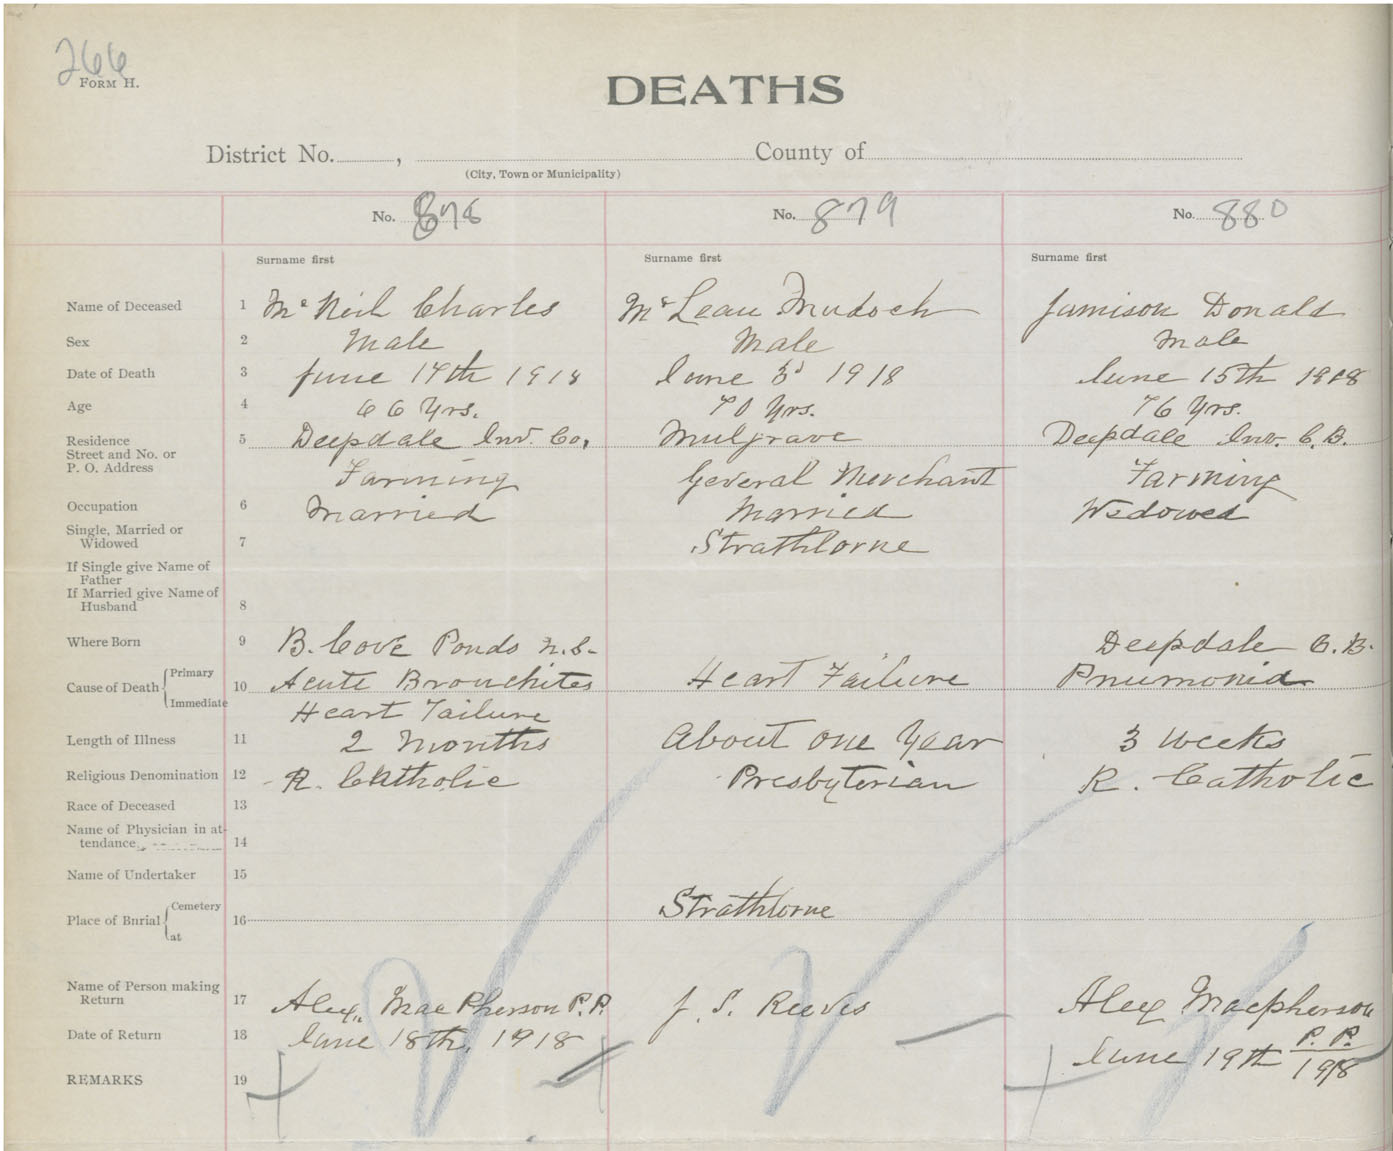 266
FORM H.
DEATHS
District No. , County of
(City, Town or Municipality)
No. 878 No. 879 No. 880
Surname first Surname first Surname first
Name of Deceased 1 Mc Neil Charles Mc Lean Murdoch Jamison Donald
Sex 2 Male Male Male
Date of Death 3 June 14th 1918 June 3d 1918 June 15th 1918
Age 4 66 Yrs. 70 Yrs. 76 Yrs.
Residence 5 Deepdale Inv. Co. Mulgrave Deepdale Inv. C.B.
Street and No. or
P. O. Address Farming General Merchant Farming
Occupation 6 Married Married Widowed
Single, Married or
Widowed 7 Strathlorne
If Single give Name of
Father
If Married give Name of
Husband 8
Where Born 9 B. Cove Ponds N.S. Deepdale C.B.
Cause of Death Primary
Immediate 10 Acute Bronchites Heart Failure Pnumonia
Heart Failure
Length of Illness 11 2 Months About one Year 3 weeks
Religious Denomination 12 R. Catholic Presbyterian R. Catholic
Race of Deceased 13
Name of Physician in at-
tendance 14
Name of Undertaker 15
Place of Burial Cemetery
at 16 Strathlorne
Name of Person making
Return 17 Alex. MacPherson P.P. J. S. Reeves Alex Macpherson
P. P.
Date of Return 18 June 18th, 1918 June 19th 1918
REMARKS 19